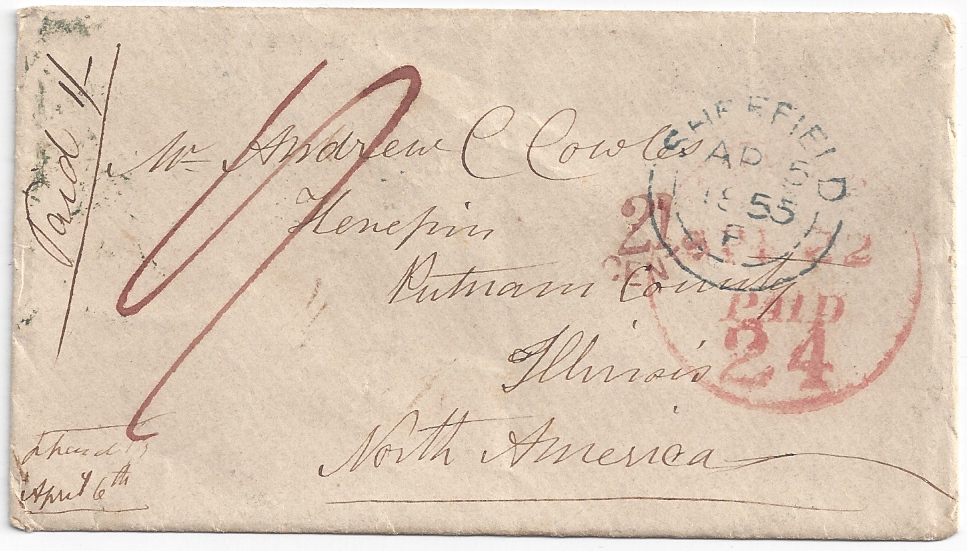 Paid 1/-
Mr Andrew C Cowles
Henepin
Putnam County
Illinois
North America
April 6th
SHEFFIELD
AP 5
1855
P
21
CENTS
22
PAID
24